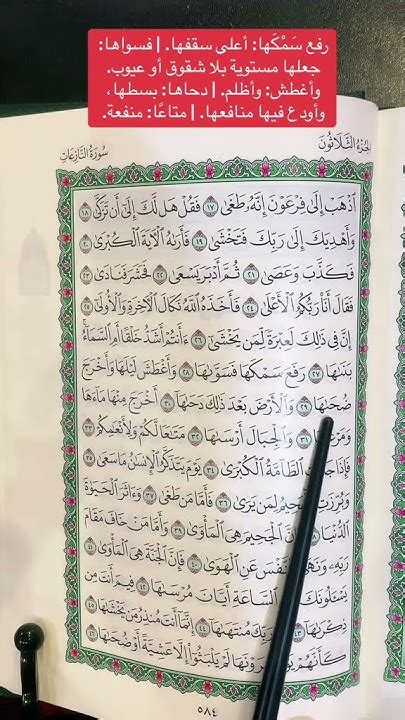 رفع سَمْكَها: أعلى سقفها. | فسواها:
جعلها مستوية بلا شقوق أو عيوب.
وأغطش: وأظلم. | دحاها: بسطها،
وأودع فيها منافعها. | متاعًا: منفعة.
الجزء الثلاثون سورة النازعات
ٱذْهَبْ إِلَىٰ فِرْعَوْنَ إِنَّهُۥ طَغَىٰ ١٧ فَقُلْ هَل لَّكَ إِلَىٰٓ أَن تَزَكَّىٰ ١٨
وَأَهْدِيَكَ إِلَىٰ رَبِّكَ فَتَخْشَىٰ ١٩ فَأَرَىٰهُ ٱلْءَايَةَ ٱلْكُبْرَىٰ ٢٠
فَكَذَّبَ وَعَصَىٰ ٢١ ثُمَّ أَدْبَرَ يَسْعَىٰ ٢٢ فَحَشَرَ فَنَادَىٰ ٢٣
فَقَالَ أَنَا۠ رَبُّكُمُ ٱلْأَعْلَىٰ ٢٤ فَأَخَذَهُ ٱللَّهُ نَكَالَ ٱلْءَاخِرَةِ وَٱلْأُولَىٰٓ ٢٥
إِنَّ فِي ذَٰلِكَ لَعِبْرَةً لِّمَن يَخْشَىٰٓ ٢٦ ءَأَنتُمْ أَشَدُّ خَلْقًا أَمِ ٱلسَّمَآءُ ۚ
بَنَىٰهَا ٢٧ رَفَعَ سَمْكَهَا فَسَوَّىٰهَا ٢٨ وَأَغْطَشَ لَيْلَهَا وَأَخْرَجَ
ضُحَىٰهَا ٢٩ وَٱلْأَرْضَ بَعْدَ ذَٰلِكَ دَحَىٰهَآ ٣٠ أَخْرَجَ مِنْهَا مَآءَهَا
٣١ وَٱلْجِبَالَ أَرْسَىٰهَا ٣٢ مَتَٰعًا لَّكُمْ وَلِأَنْعَٰمِكُمْ ٣٣
فَإِذَا ٱلطَّآمَّةُ ٱلْكُبْرَىٰ ٣٤ يَوْمَ يَتَذَكَّرُ ٱلْإِنسَٰنُ مَا سَعَىٰ ٣٥
وَبُرِّزَتِ ٱلْجَحِيمُ لِمَن يَرَىٰ ٣٦ فَأَمَّا مَن طَغَىٰ ٣٧ وَءَاثَرَ ٱلْحَيَوٰةَ
ٱلدُّنْيَا ٣٨ ٱلْجَحِيمَ هِيَ ٱلْمَأْوَىٰ ٣٩ وَأَمَّا مَنْ خَافَ مَقَامَ
رَبِّهِۦ ٱلنَّفْسَ عَنِ ٱلْهَوَىٰ ٤٠ فَإِنَّ ٱلْجَنَّةَ هِيَ ٱلْمَأْوَىٰ ٤١
يَسْـَٔلُونَكَ ٱلسَّاعَةِ أَيَّانَ مُرْسَىٰهَا ٤٢ فِيمَ أَنتَ مِن
ذِكْرَىٰهَآ ٤٣ رَبِّكَ مُنتَهَىٰهَآ ٤٤ إِنَّمَآ أَنتَ مُنذِرُ مَن يَخْشَىٰهَا ٤٥
كَأَنَّهُمْ يَوْمَ يَرَوْنَهَا لَمْ يَلْبَثُوٓا۟ إِلَّا عَشِيَّةً أَوْ ضُحَىٰهَا ٤٦
٥٨٤